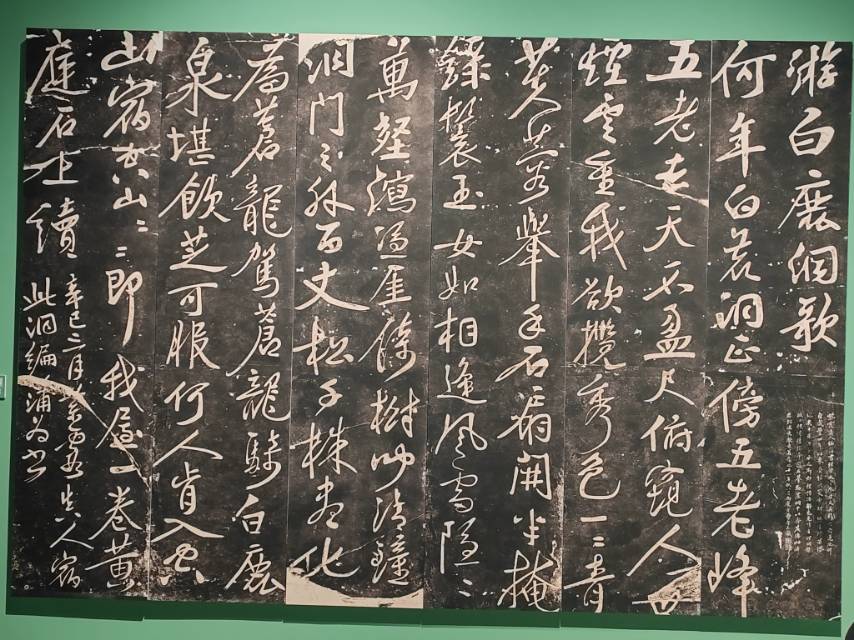 游白鹿洞歌
何年白鹿洞正傍五老峰
五老去天不盈尺俯窺人世
煙雲重我欲攬秀色一二青
芙蓉舉手石扇開半掩
綠鬟玉女如相逢風雷隱二
萬壑瀉憑崖倚樹聞清鐘
洞門之外百丈松千株盡化
為蒼龍駕蒼龍騎白鹿
泉堪飲芝可服何人肯入空
山宿空山二二即我屋一卷黃
庭石上讀
辛巳三月紫霞真人宿
此洞編蒲為書